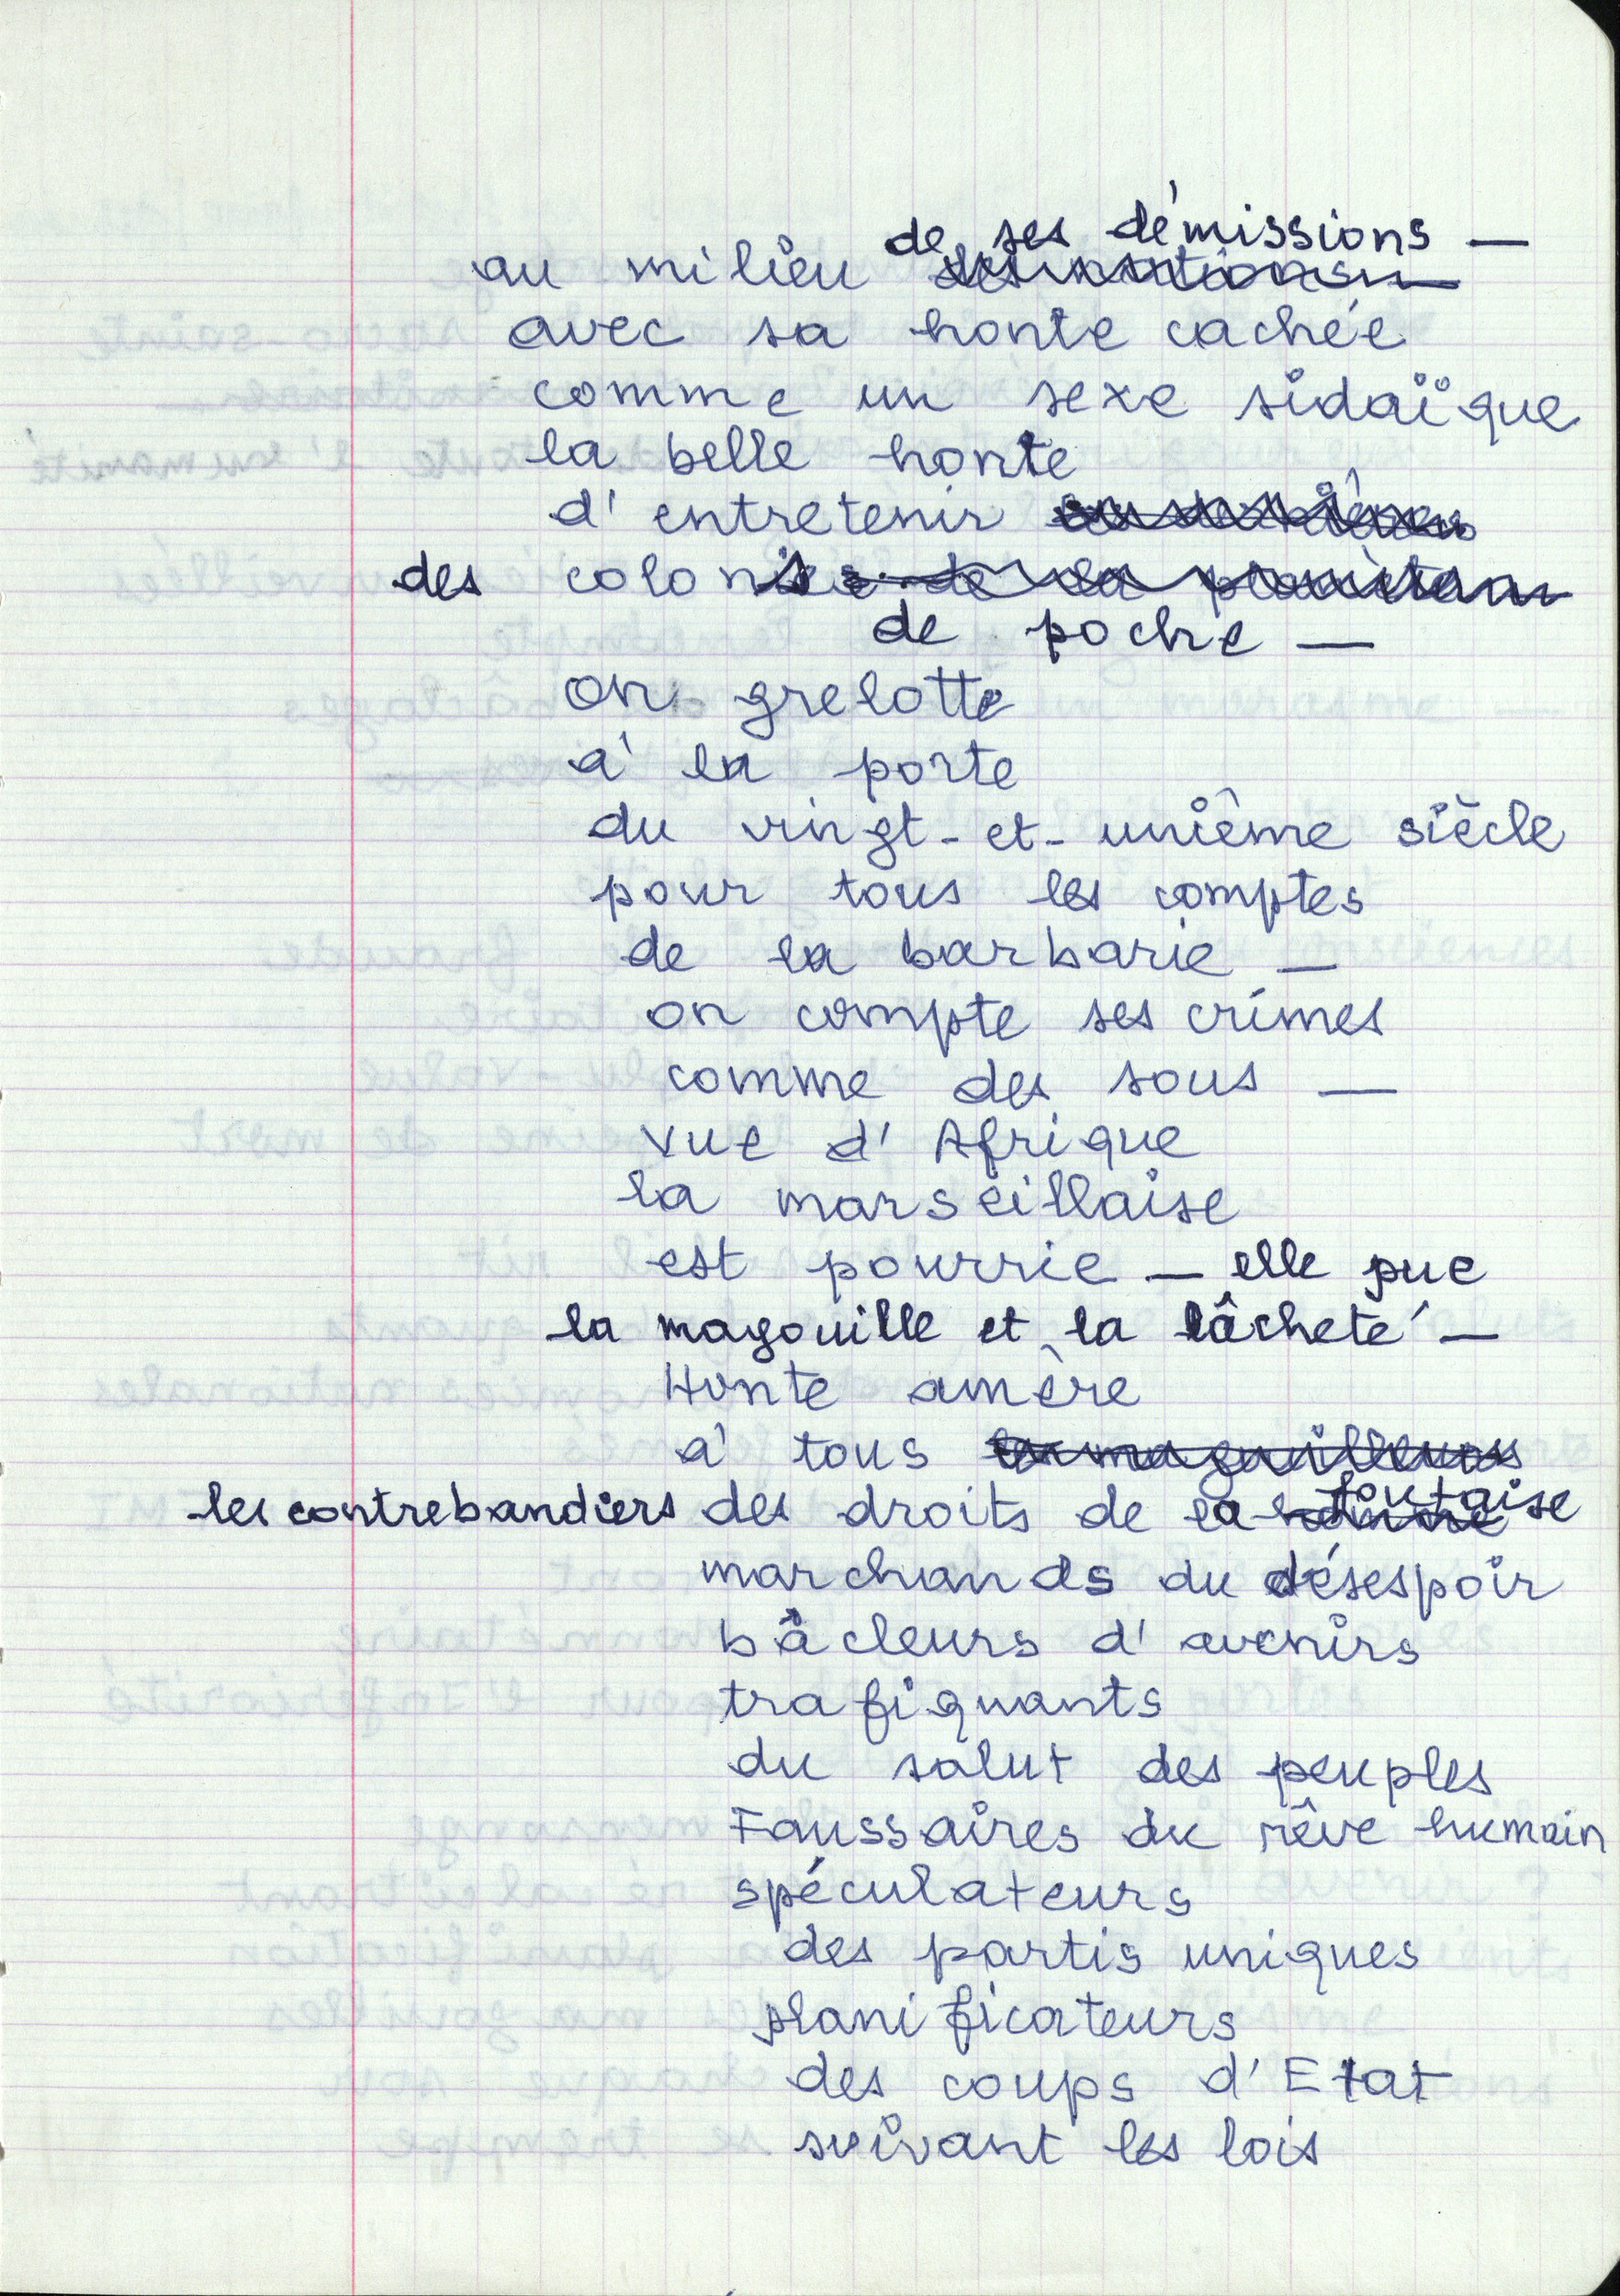 de ses démissions —
au milieu
avec sa honte cachée
comme un sexe sidaïque
la belle honte
d'entretenir
des colonies de la
de poche —
on grelotte
à la porte
du vingt-et-unième siècle
pour tous les comptes
de la barbarie —
on compte ses crimes
comme des sous —
vue d'Afrique
la marseillaise
est pourrie — elle pue
la magouille et la lâcheté —
Honte amère
à tous les magouilleurs
foutaise
les contrebandiers des droits de la
marchands du désespoir
bâcleurs d'avenirs
trafiquants
du salut des peuples
Faussaires du rêve humain
spéculateurs
des partis uniques
planificateurs
des coups d'Etat
suivant les lois